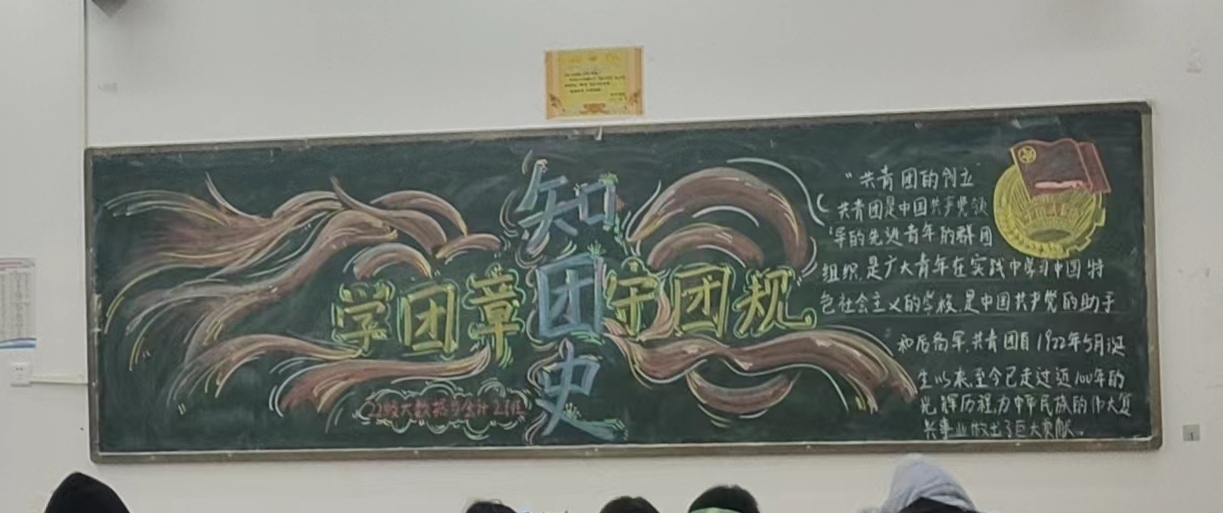 知
学团章 团 守团规
史
22级大数据与会计2班
“共青团的创立
共青团是中国共产党领
导的先进青年的群团
组织,是广大青年在实践中学习中国特
色社会主义的学校,是中国共产党的助手
和后备军,共青团自1922年5月诞
生以来,至今已走过近100年的
光辉历程,为中华民族的伟大复
兴事业做出了巨大贡献。